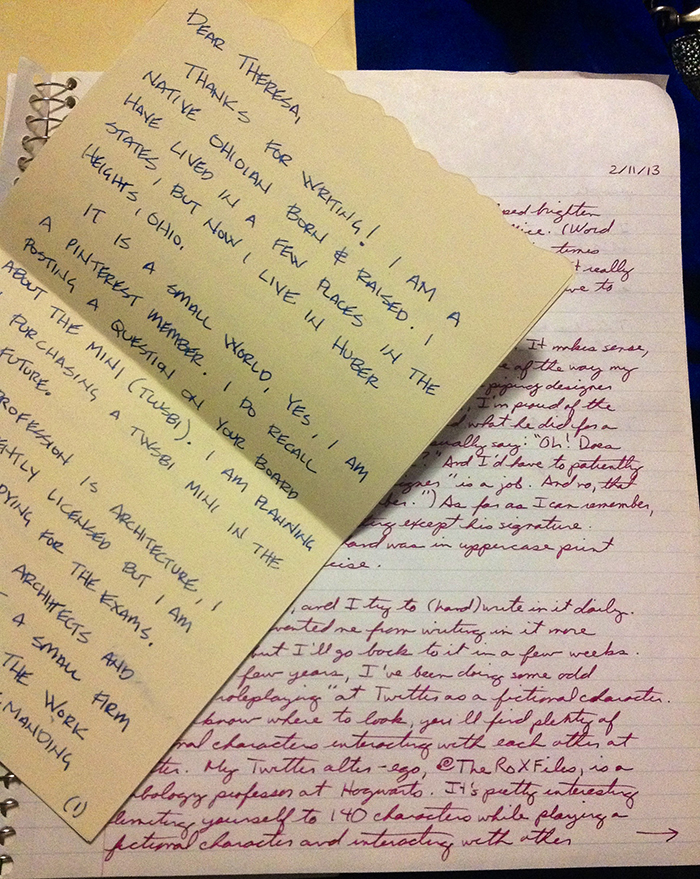 DEAR THERESA,
THANKS FOR WRITING! I AM A
NATIVE OHIOIAN BORN & RAISED. I
HAVE LIVED IN A FEW PLACES IN THE
STATES, BUT NOW I LIVE IN HUBER
HEIGHTS, OHIO.
IT IS A SMALL WORLD, YES, I AM
A PINTEREST MEMBER. I DO RECALL
POSTING A QUESTION ON YOUR BOARD
ABOUT THE MINI (TWSBI). I AM PLANNING
PURCHASING A TWSBI MINI IN THE
FUTURE.
PROFESSION IS ARCHITECTURE, I
LICENSED BUT I AM
FOR THE EXAMS.
ARCHITECTS AND
A SMALL FIRM
THE WORK
(1)
2/11/13
brighten
(Word
times
really
to
It makes sense,
of the way my
piping designer
I'm proud of the
what he did for a
say: "Oh! Does
?" And I'd have to patiently
" is a job. And no, that
.") As far as I can remember,
except his signature.
was in uppercase print
, and I try to (hand)write in it daily.
me from writing in it more
but I'll go back to it in a few weeks.
few years, I've been doing some odd
roleplaying" at Twitter as a fictional character.
know where to look, you'll find plenty of
characters interacting with each other at
My Twitter alter-ego, @TheRoXFiles, is a
professor at Hogwarts. It's pretty interesting
limiting yourself to 140 characters while playing a
fictional character and interacting with other →